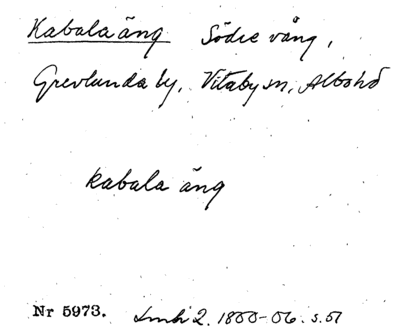 Kabala äng Södre vång,
Grevlunda by, Vitaby sn, Albo hd
kabala äng
Nr 5973. Lmh 2. 1800-06. s. 51